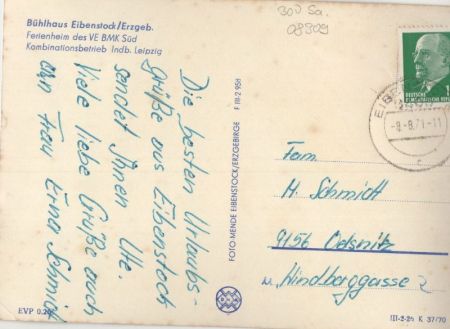 Bühlhaus Eibenstock/Erzgeb.
Ferienheim des VE BMK Süd
Kombinationsbetrieb Indb. Leipzig
300 Sa.
08309
DEUTSCHE
DEMOKRATISCHE REPUBLIK
-8-8.71-11
Die besten Urlaubs-
grüße aus Eibenstock
sendet Ihnen Ute.
Viele liebe Grüße auch
an Frau Erna Schmidt
F III-2 95t
FOTO MENDE EIBENSTOCK/ERZGEBIRGE
Fam.
H. Schmidt
9156 Oelsnitz
Windberggasse 2
EVP 0.20
III-2-25 K 37/70